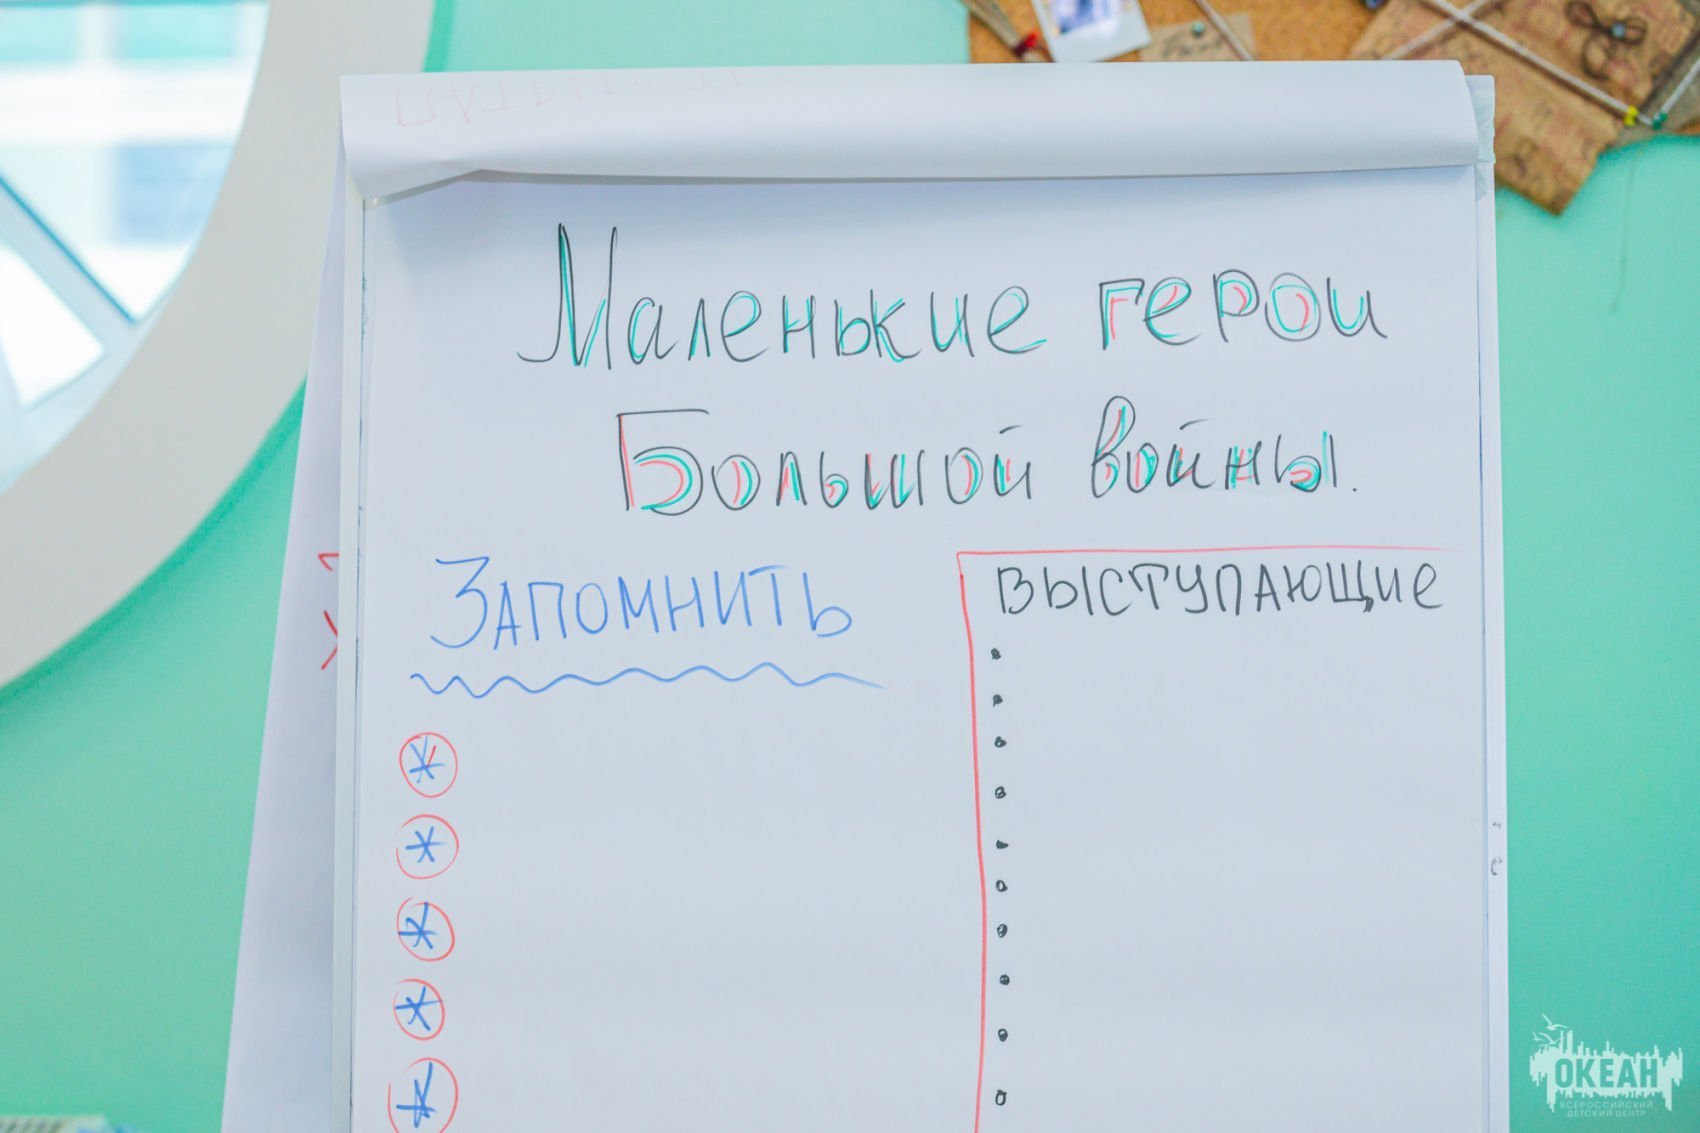 Маленькие герои
Большой войны.
ЗАПОМНИТЬ
ВЫСТУПАЮЩИЕ
ОКЕАН
ВСЕРОССИЙСКИЙ
ДЕТСКИЙ ЦЕНТР